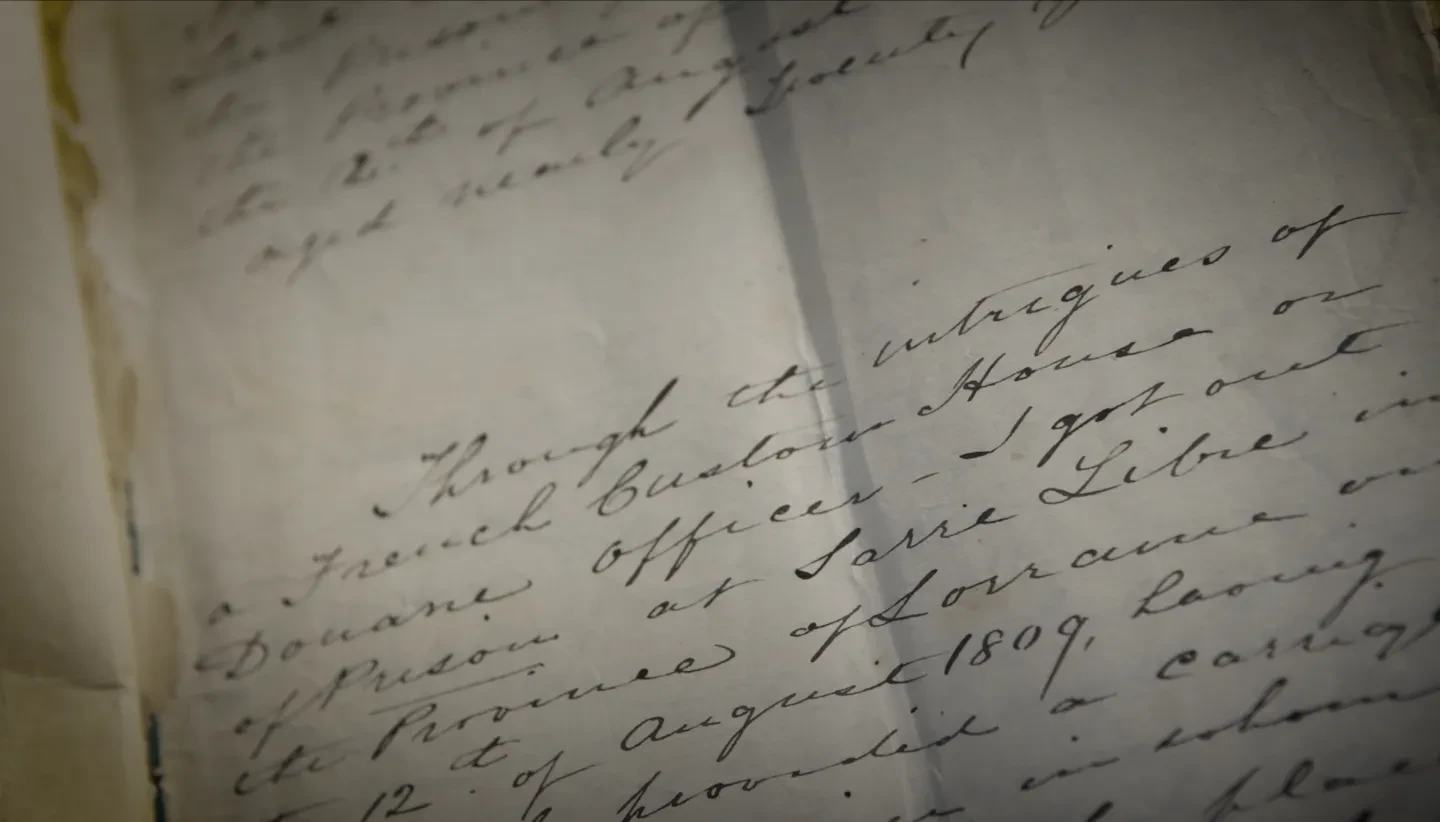 the Province of
the 2. th of August
aged nearly Twenty
Through the intrigues of
a French Custom House or
Douane officer - I got out
of Prison at Sarre Libre in
the Province of Lorraine on
12 th of August 1809, having
provided a carriage
in whom
place